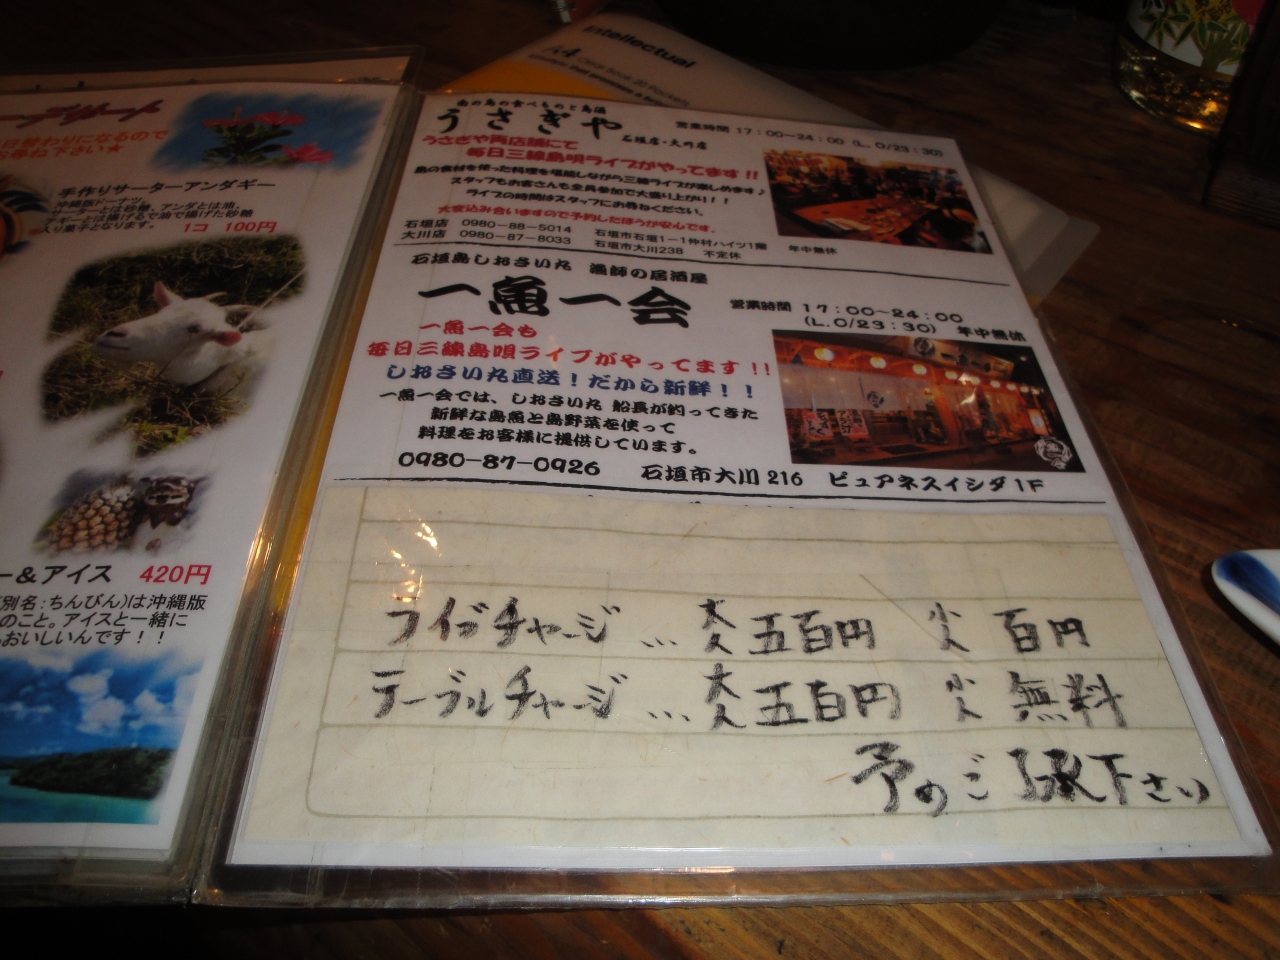 デザート
日替わりになるので
お尋ね下さい★
手作りサーターアンダギー
沖縄版ドーナツ
サーターとは砂糖、アンダとは油、
アギーとは揚げるで油で揚げた砂糖
入り菓子となります。
1コ 100円
ー&アイス 420円
別名:ちんびん)は沖縄版
のこと。アイスと一緒に
おいしいんです!!
Intellectual
A4 Clear Book 20 Pockets
南の島の食べものと島酒
うさぎや 石垣店・大川店
営業時間 17:00~24:00 (L.O/23:30)
うさぎや両店舗にて
毎日三線島唄ライブがやってます!!
島の食材を使った料理を堪能しながら三線ライブが楽しめます♪
スタッフもお客さんも全員参加で大盛り上がり!!
ライブの時間はスタッフにお尋ねください。
大変込み合いますので予約したほうが安心です。
石垣店 0980-88-5014 石垣市石垣1-1仲村ハイツ1階 年中無休
大川店 0980-87-8033 石垣市大川238 不定休
石垣島しおさい丸 漁師の居酒屋
一魚一会
営業時間 17:00~24:00
(L.O/23:30) 年中無休
一魚一会も
毎日三線島唄ライブがやってます!!
しおさい丸直送!だから新鮮!!
一魚一会では、しおさい丸 船長が釣ってきた
新鮮な島魚と島野菜を使って
料理をお客様に提供しています。
0980-87-0926 石垣市大川216 ピュアネスイシダ1F
ライブチャージ … 大人 五百円 小人 百円
テーブルチャージ … 大人 五百円 小人 無料
予めご了承下さい